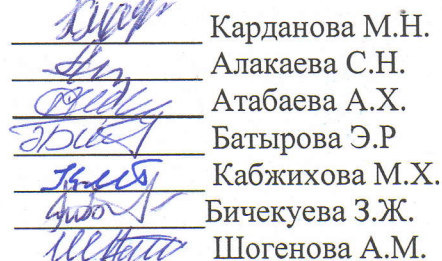 Карданова М.Н.
Алакаева С.Н.
Атабаева А.Х.
Батырова Э.Р
Кабжихова М.Х.
Бичекуева З.Ж.
Шогенова А.М.